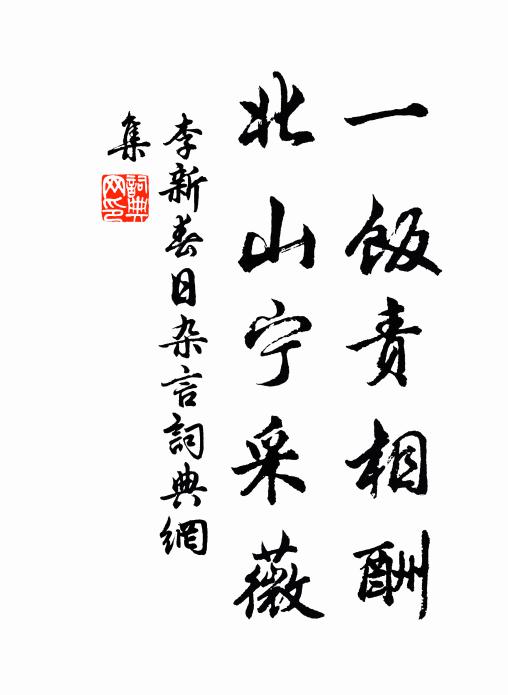 一飯責相酬
北山宁采薇
李新春日杂言詞典網
集
詞典
网印